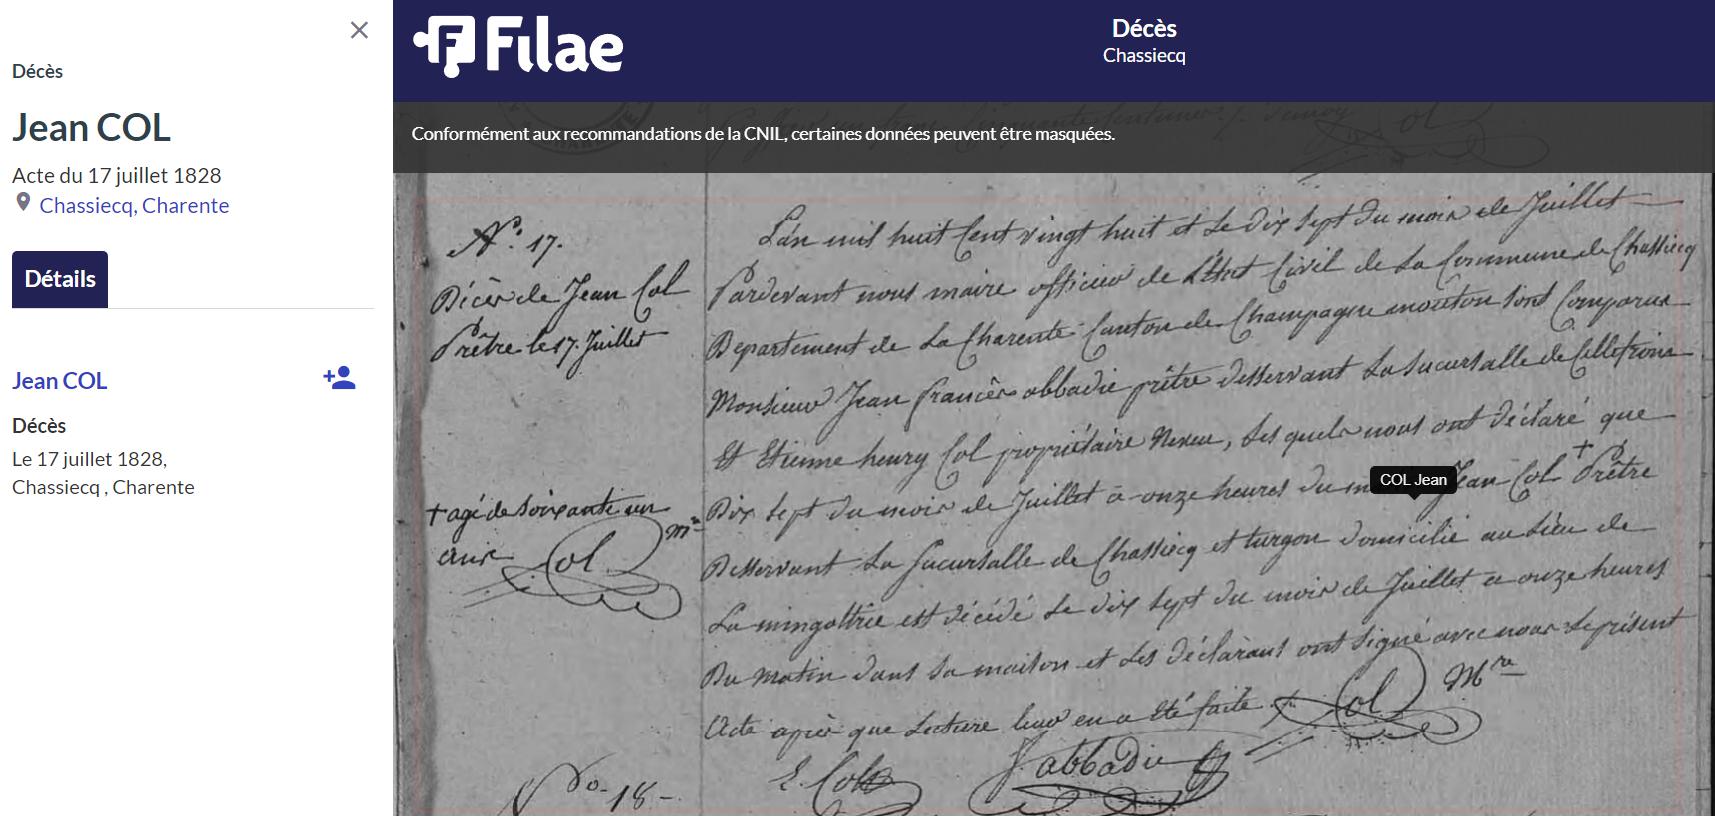 Décès
Jean COL
Acte du 17 juillet 1828
Chassiecq, Charente
Détails
Jean COL
Décès
Le 17 juillet 1828,
Chassiecq , Charente
Filae
Décès
Chassiecq
Conformément aux recommandations de la CNIL, certaines données peuvent être masquées.
N°. 17.
Décès de Jean Col
Prêtre le 17. Juillet
+ agé de soixante un
ans Col Mre
L'an mil huit Cent vingt huit et Le Dix Sept du mois de Juillet
Pardevant nous maire officier de l'état Civil de La Commune de Chassiecq
Departement de La Charente Canton de Champagne mouton Sont Comparus
Monsieur Jean françois abbadie prêtre desservant La Sucursalle de Cellefrouin
Et Etienne henry Col propriétaire Neveu, Les quels nous ont déclaré que
Dix Sept du mois de Juillet à onze heures du Jean Col + Prêtre
COL Jean
Desservant La Sucursalle de Chassiecq et turgon domicilié au Lieu de
La est décédé Le dix Sept du mois de Juillet à onze heures
Du Matin dans Sa maison et Les déclarans ont Signé avec nous Le présent
Acte après que Lecture leur en a Eté faite. Col Mre
E. Col abbadie
No. 18-